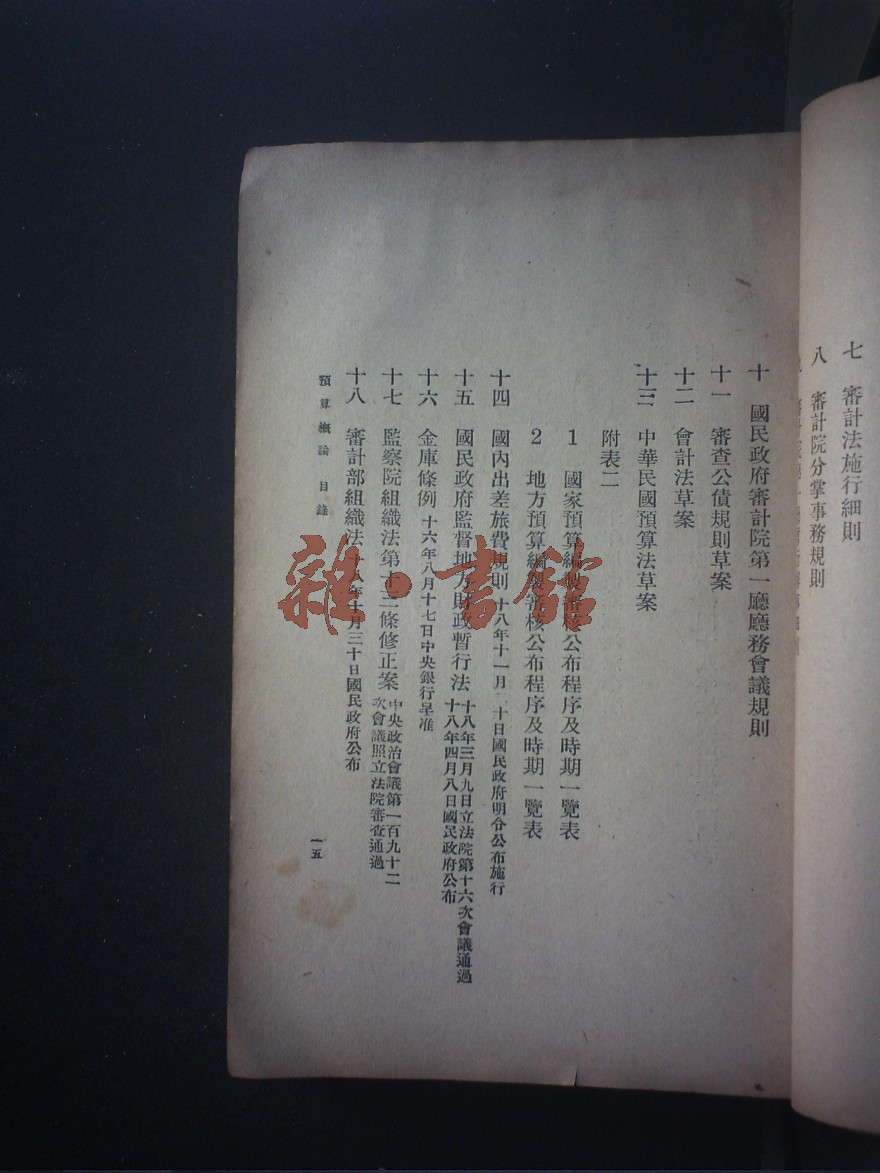 七　審計法施行細則
八　審計院分掌事務規則
十　國民政府審計院第一廳廳務會議規則
十一　審查公債規則草案
十二　會計法草案
十三　中華民國預算法草案
附表二
1　國家預算編製審核公布程序及時期一覽表
2　地方預算編製審核公布程序及時期一覽表
十四　國內出差旅費規則　十八年十一月　十日國民政府明令公布施行
十五　國民政府監督地方財政暫行法　十八年三月九日立法院第十六次會議通過
十八年四月八日國民政府公布
十六　金庫條例　十六年八月十七日中央銀行呈准
十七　監察院組織法第十三條修正案　中央政治會議第一百九十二
次會議照立法院審查通過
十八　審計部組織法　十八年十月三十日國民政府公布
預算概論　目錄
一五
雜·書館